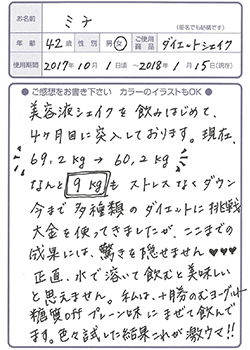 お名前 ミナ
(匿名でも結構です)
年齢 42歳 性別 男・女 ご使用商品 ダイエットシェイク
使用期間 2017年10月1日頃 ～2018年1月15日(現在)
●ご感想をお書き下さい カラーのイラストもOK●
美容液シェイクを飲みはじめて、
4ヶ月目に突入しております。現在、
69.2kg → 60.2kg
なんと 9kg も ストレスなくダウン
今まで多種類のダイエットに挑戦
大金を使ってきましたが、ここまでの
成果には、驚きを隠せません♥♥♥
正直、水で溶いて飲むと美味しい
と思えません。私は、十勝のむヨーグルト
糖質off プレーン味にまぜて飲んで
ます。色々試した結果これが激ウマ!!